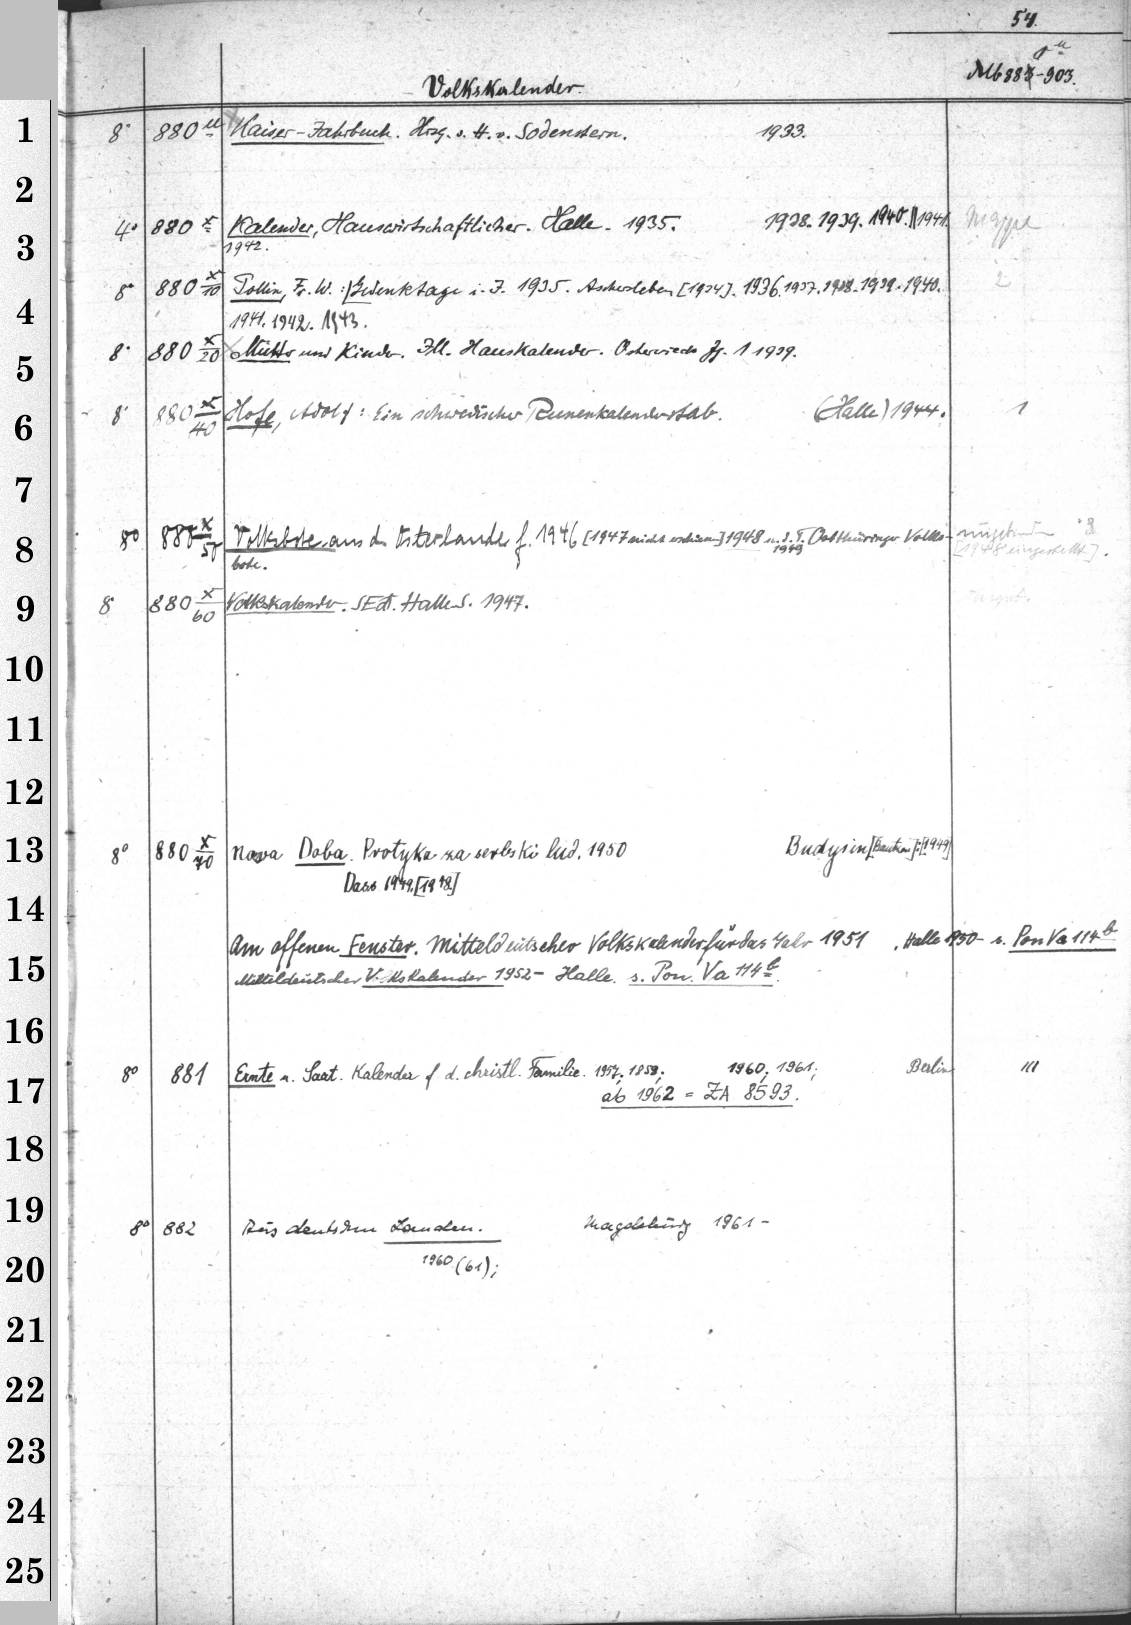 54.
Mb 883-903.
Volkskalender.
8° 880 u Kaiser-Jahrbuch. Hrsg. v. H. v. Sodenstern. 1933.
4° 880 x Kalender, Hauswirtschaftlicher. Halle. 1935. 1938. 1939. 1940. 1941. Mappe
1942.
8° 880 x/10 Pollin, Fr. W.: Gedenktage i. J. 1935. Aschersleben [1934]. 1936. 1937. 1938. 1939. 1940. 2
1941. 1942. 1943.
8° 880 x/20 Mutter und Kinder. Ill. Hauskalender. Osterwieck Jg. 1 1939.
8° 880 x/40 Hofe, Adolf: Ein schwedischer Runenkalenderstab. (Halle) 1944. 1
8° 880 x/50 Volksbote aus d. Osterlande f. 1946 [1947 nicht erschienen] 1948 u. d. T. Ostthüringer Volks-
1949
bote. [1948 eingestellt].
8° 880 x/60 Volkskalender. SED. Halle S. 1947.
8° 880 x/70 Nowa Doba. Protyka za serbski lud. 1950 Budyšin [Bautzen]: [1949]
Dass. 1949. [1948]
Am offenen Fenster. Mitteldeutscher Volkskalender für das Jahr 1951 , Halle 1950- s. Pon Va 114 b
Mitteldeutscher Volkskalender 1952- Halle. s. Pon. Va 114 b.
8° 881 Ernte u. Saat. Kalender f. d. christl. Familie. 1957; 1959; 1960; 1961; Berlin
ab 1962 = ZA 8593.
8° 882 Aus deutschen Landen. Magdeburg 1961-
1960 (61);
1
2
3
4
5
6
7
8
9
10
11
12
13
14
15
16
17
18
19
20
21
22
23
24
25